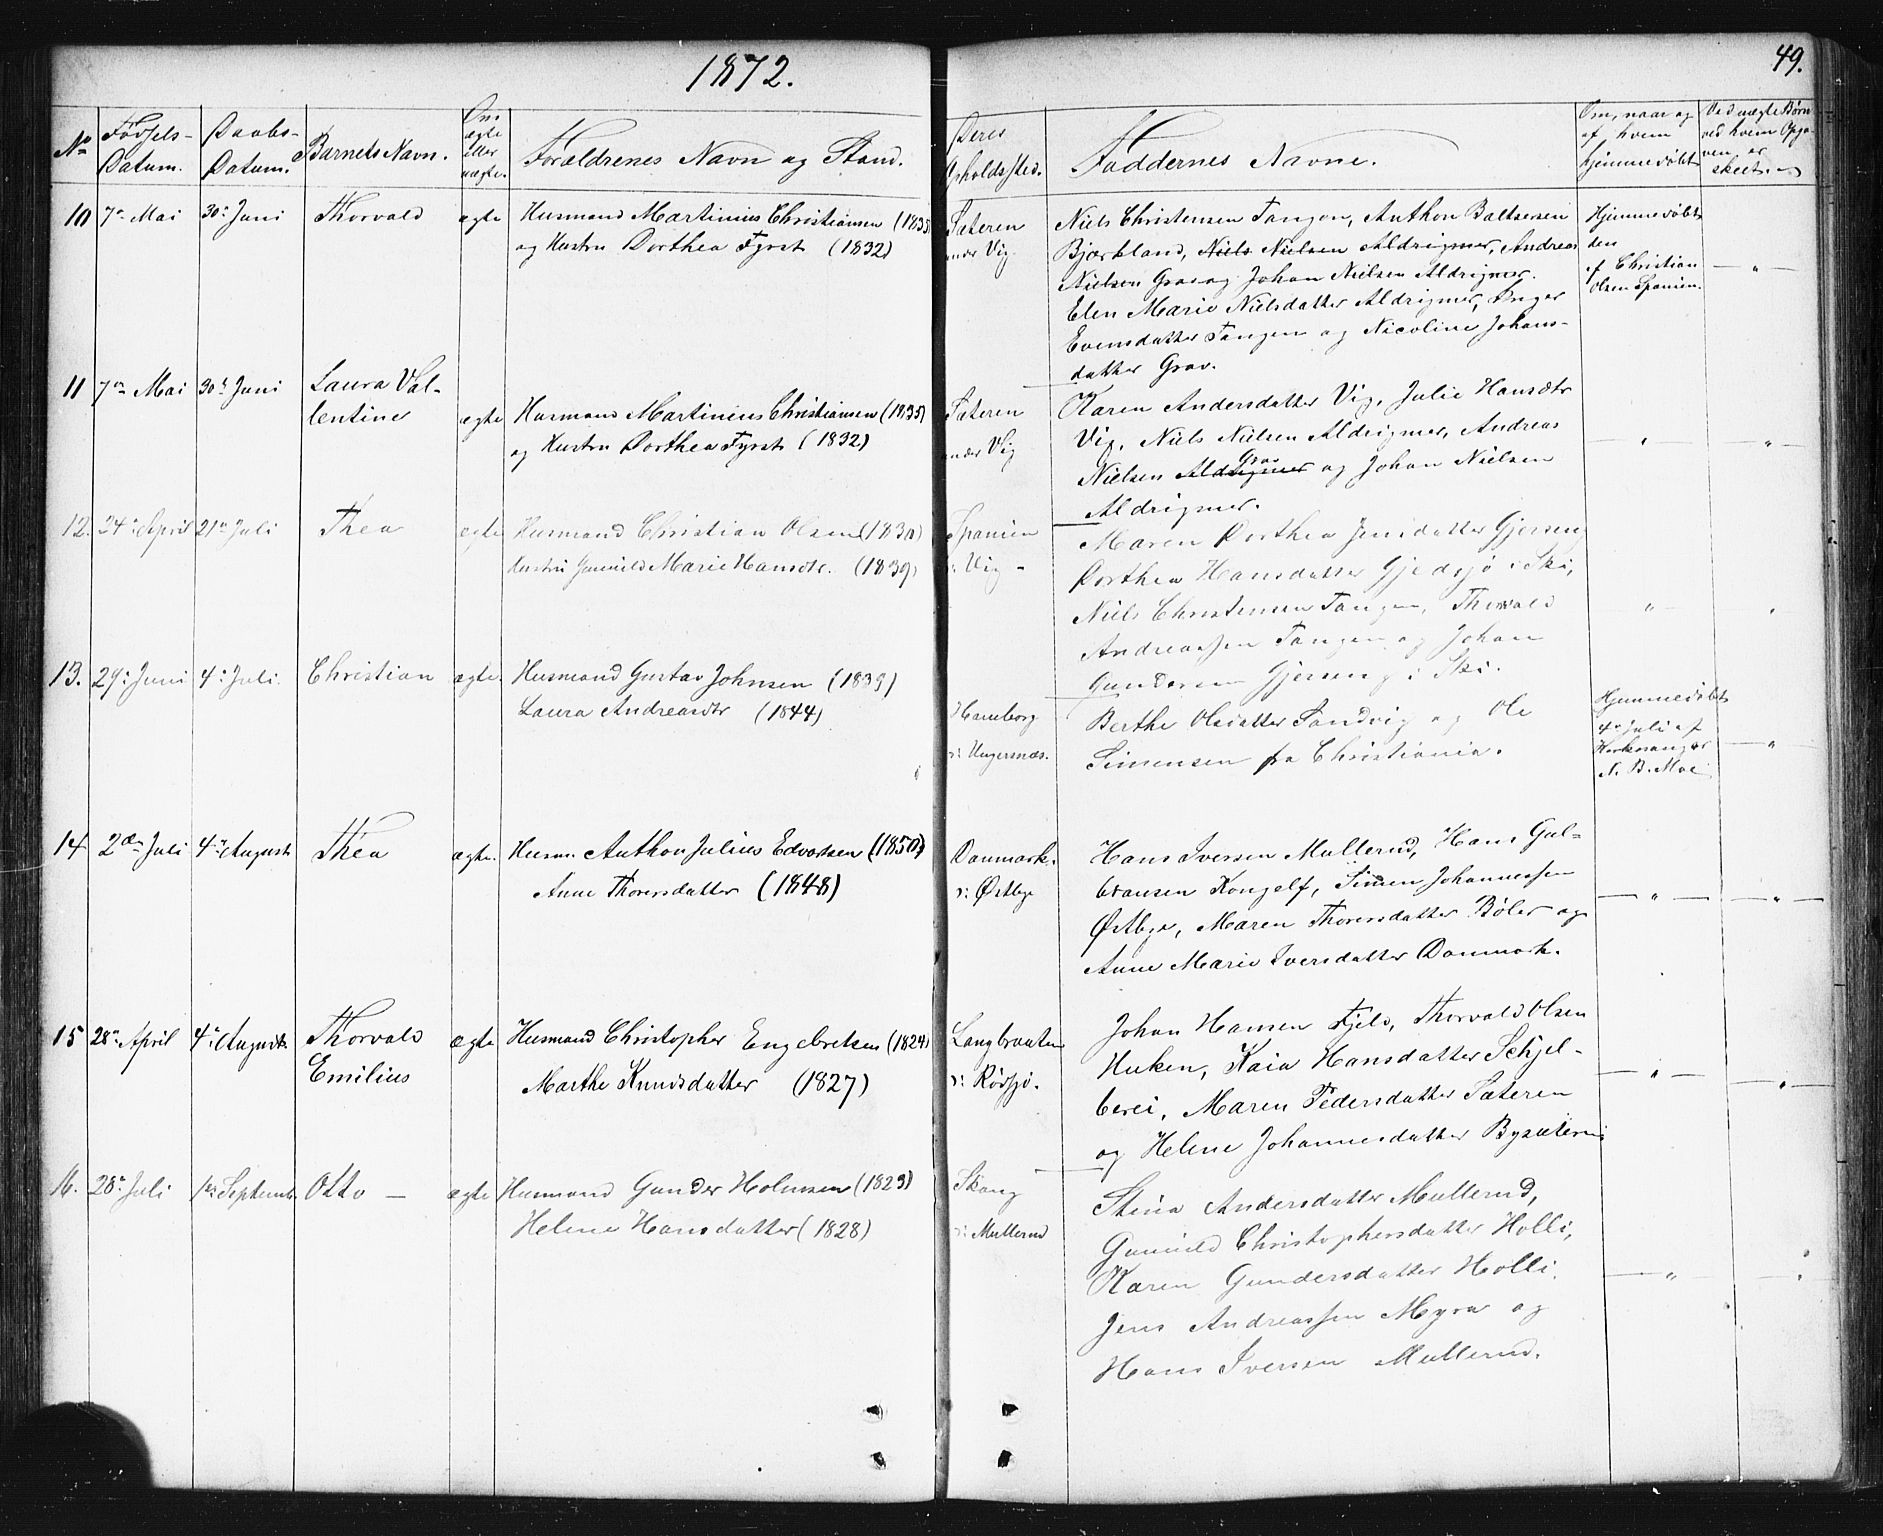 1872.
49.
No
Fødsels-
Datum.
Daabs-
Datum.
Barnets Navn.
Om
ægte
eller
uægte.
Forældrenes Navn og Stand.
Deres
Opholdssted.
Faddernes Navne.
Om, naar og
af hvem
hjemmedøbt
Ved uægte Børn
ved hvem Opga-
ven er
skeet.
10 7de Mai 30te Juni Thorvald ægte Husmand Martinius Christiansen (1835)
og Hustru Dorthea Fyrst (1832)
Sæteren
under Vig
Niels Christensen Tangen, Anthon Baltsersen
Bjørkland, Niels Nielsen Aldrigmer, Andreas
Nielsen Grav og Johan Nielsen Aldrigmer.
Elen Marie Nielsdatter Aldrigmer, Inger
Evensdatter Tangen og Nicoline Johans-
datter Grav.
Hjemmedøbt
den
af Christian
Olsen Spanien.
— " —
11 7de Mai 30te Juni Laura Val-
lentine ægte Husmand Martinius Christiansen (1835)
og Hustru Dorthea Fyrst (1832)
Sæteren
under Vig
Karen Andersdatter Vig, Julie Hansdtr
Vig, Niels Nielsen Aldrigmer, Andreas
Nielsen Aldrigmer Grav og Johan Nielsen
Aldrigmer.
— " — — " —
12. 24de April 21de Juli Thea ægte Husmand Christian Olsen (1830)
Hustru Gunild Marie Hansdtr. (1839)
Spanien
u: Vig -
Maren Dorthea Jensdatter Gjerseng
Dorthea Hansdatter Gjedsjø i Ski,
Niels Christensen Tangen, Thorvald
Andreassen Tangen og Johan
Gundersen Gjerseng i Ski.
— " — "
13. 29de Juni 4de Juli Christian ægte. Husmand Gustav Johnsen (1839)
Laura Andreasdtr (1844)
Hameborg
u: Ungersnæs.
Berthe Olsdatter Sandvig og Ole
Simensen fra Christiania.
Hjemmedøbt
4de Juli af
Kirkesanger
N. B. Moe
— " —
14 2den Juli 4de August Thea ægte. Husm. Anthon Julius Edvartsen (1850)
Anne Thorersdatter (1848)
Danmark.
u: Østbye
Hans Iversen Mullerud, Hans Gul-
bransen Kongelf, Simen Johannessen
Østbye, Maren Thorersdatter Bøler og
Anne Marie Iversdatter Danmark.
— " — — " —
15 28de April 4de August Thorvald
Emilius ægte Husmand Christopher Engebretsen (1824)
Marthe Knudsdatter (1827)
Langbraaten
u: Rødsjø.
Johan Hansen Fjeld, Thorvald Olsen
Huken, Kaia Hansdatter Schjel-
berei, Maren Pedersdatter Sæteren
og Helene Johannesdatter Bysæteren
— " — — " —
16. 28de Juli 1ste Septemb. Otto — ægte Husmand Gunder Holmsen (1823)
Helene Hansdatter (1828)
Skoug
u: Mullerud
Stina Andersdatter Mullerud,
Gunild Christophersdatter Holli,
Karen Gundersdatter Holli.
Jens Andreassen Myra og
Hans Iversen Mullerud.
— " — "